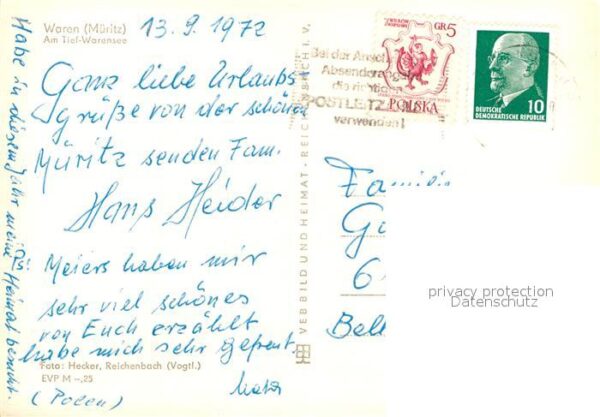 Waren (Müritz)
Am Tief-Warensee
13.9.1972
Ganz liebe Urlaubs
grüße von der schönen
Müritz senden Fam.
Hans Heider
Meiers haben mir
sehr viel schönes
von Euch erzählt
habe mich sehr gefreut.
Foto: Hecker, Reichenbach (Vogtl.)
EVP M -,25
(Polen)
Habe in diesem Jahr meine Heimat besucht.
VEB BILD UND HEIMAT · REICHENBACH I. V.
GR 5
POLSKA
Bei der
Absenderangabe
die richtigen
POSTLEITZ
verwenden!
10
DEUTSCHE
DEMOKRATISCHE REPUBLIK
Famili
G
6
Bel
privacy protection
Datenschutz